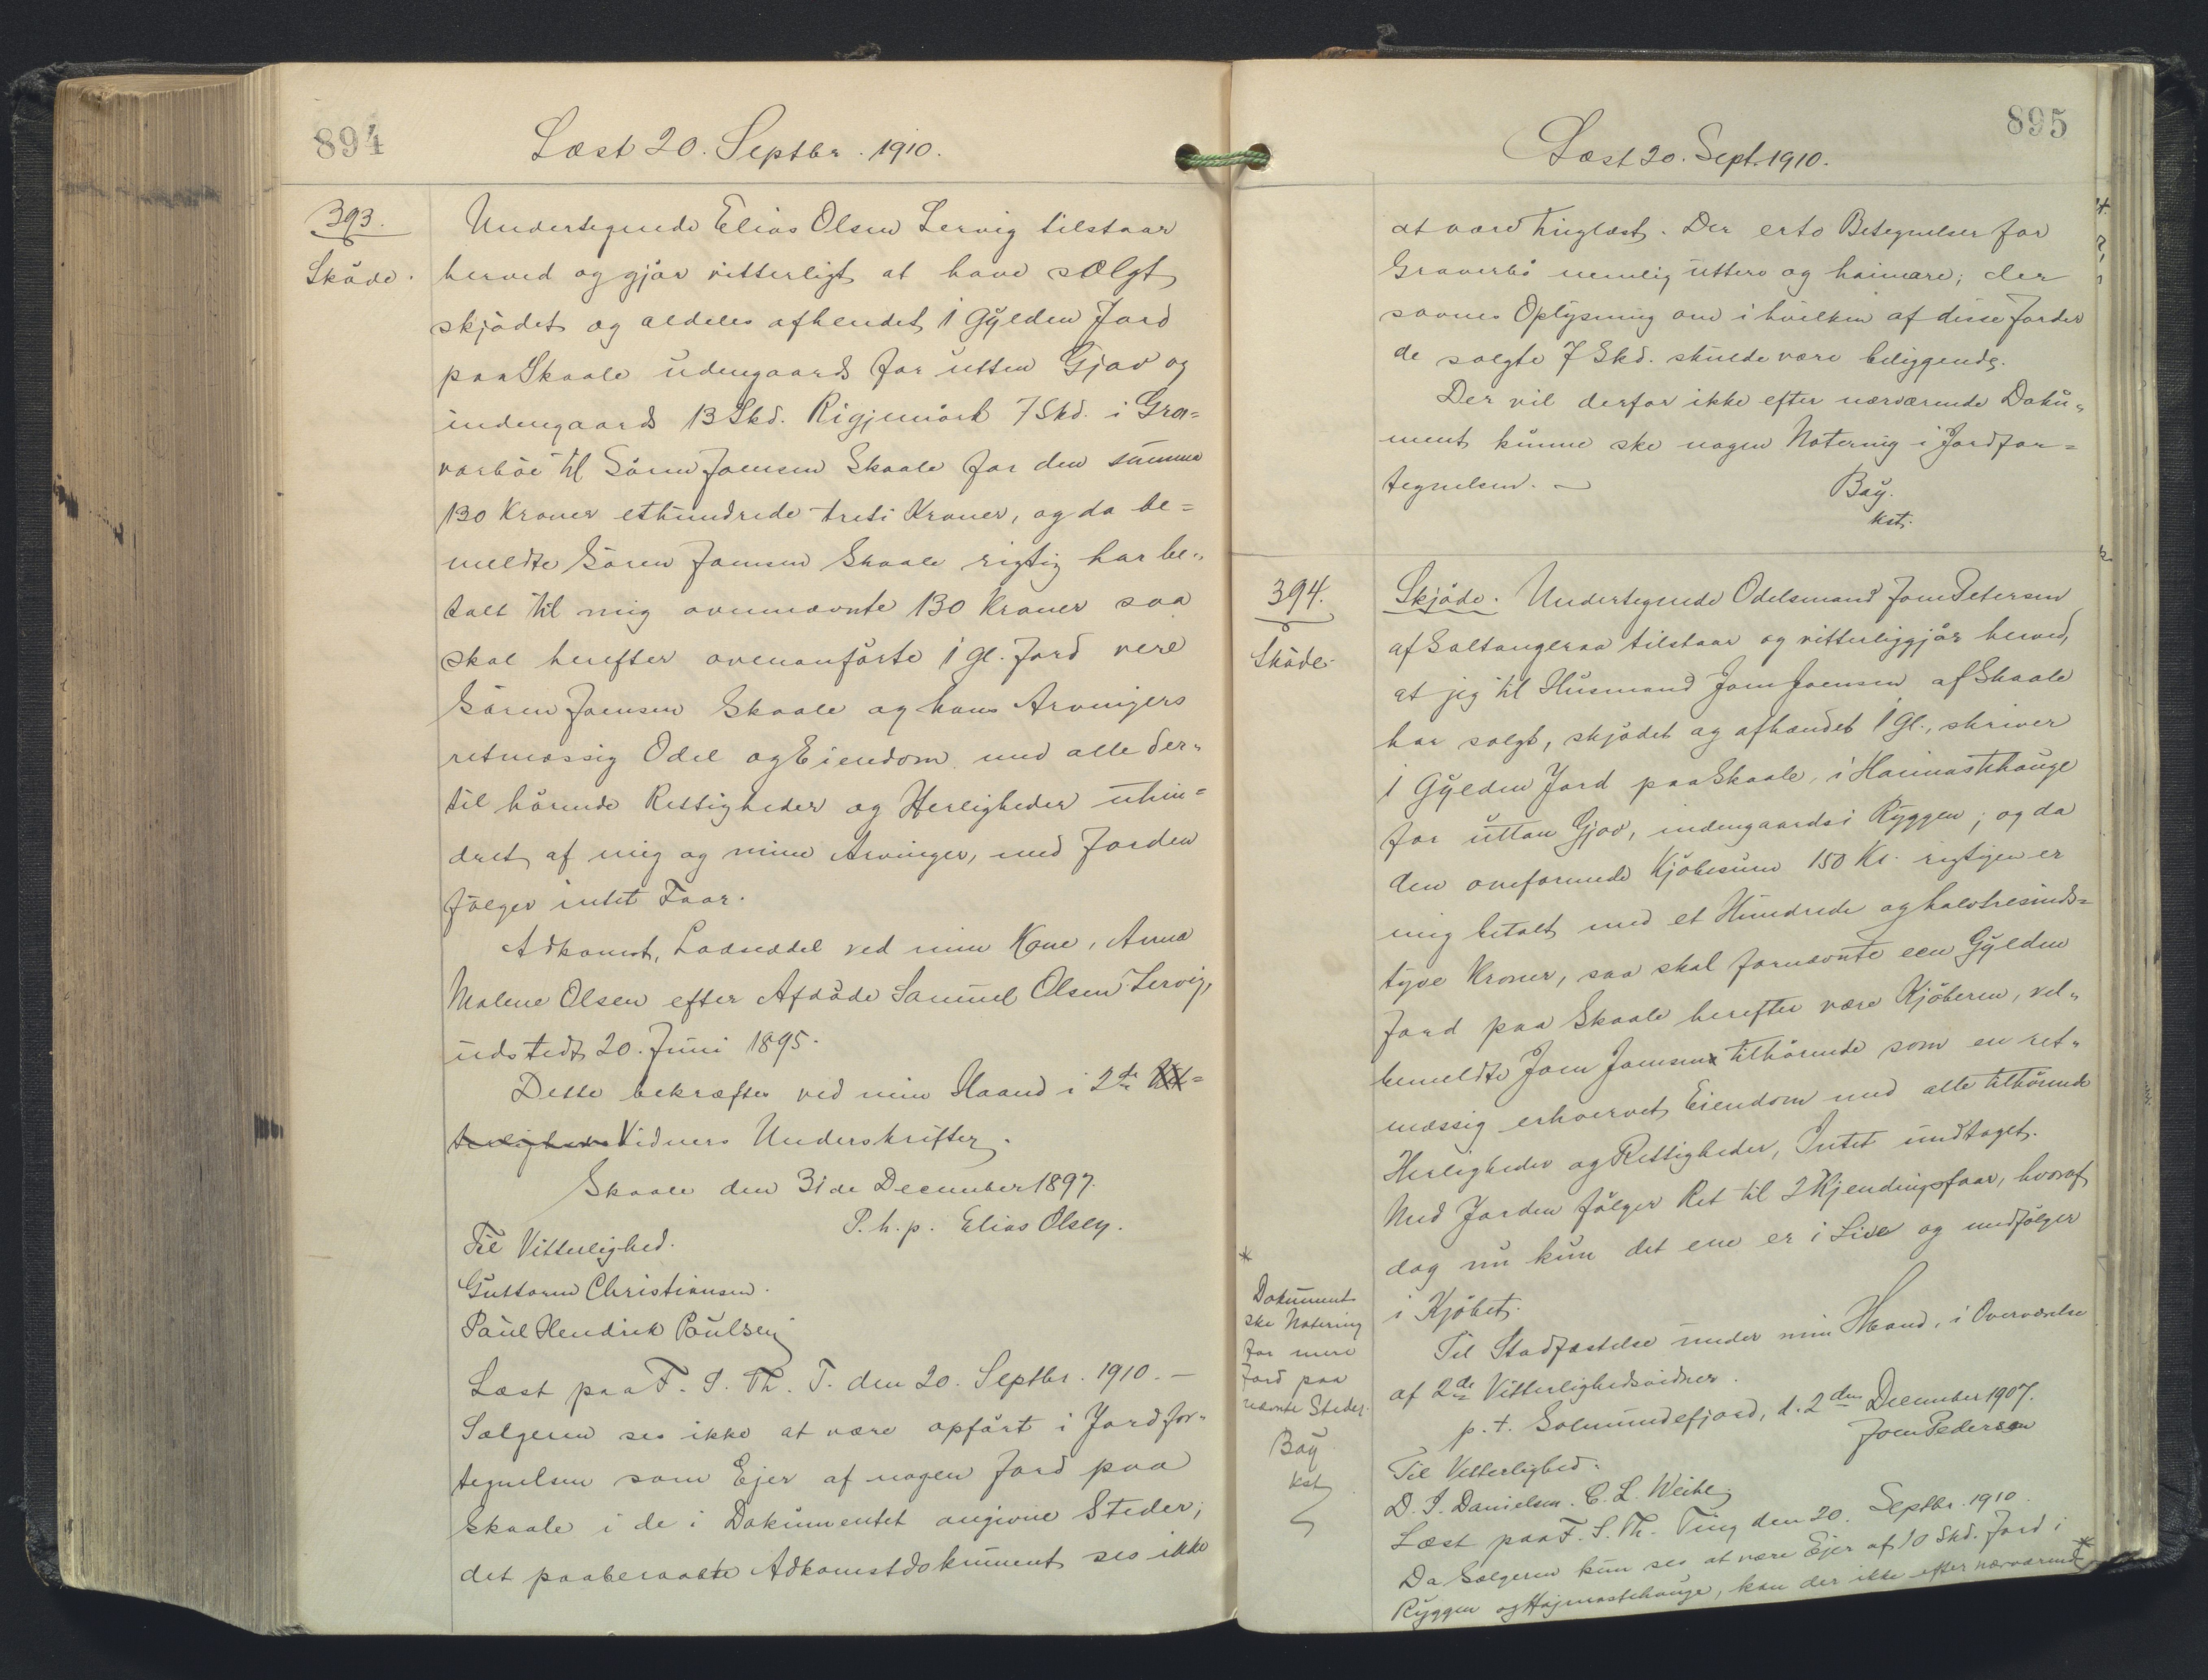 894
Læst 20. Septbr. 1910.
393.
Skøde.
Undertegnede Elias Olsen Lervig tilstaar
herved og gjør vitterligt at have solgt
skjødet og aldeles afhendet 1 Gylden Jord
paa Skaale udengaards for utten Gjav og
indengaards 13 Skd. Rigjimörk 7 Skd. i Gra=
varbøe til Søren Joensen Skaale for den summa
130 Kroner ethundrede treti Kroner, og da be=
meldte Søren Joensen Skaale rigtig har be=
talt til mig ovennævnte 130 Kroner saa
skal herefter ovenanførte 1 Gl. Jord vere
Søren Joensen Skaale og hans Arvingers
retmæssig Odel og Eiendom med alle der=
til hørende Rettigheder og Herligheder uhin=
dret af mig og mine Arvinger, med Jorden
følger intet Faar.
Adkomst, Lodsedel ved min Kone, Anna
Malene Olsen efter Afdøde Samuel Olsen Lervig,
udstedt 20. Juni 1895.
Dette bekræftes ved min Haand i 2de Vit=
terligheds Vidners Underskrifter.
Skaale den 31de December 1897.
P. h. p. Elias Olsen.
Til Vitterlighed.
Guttorm Christiansen.
Paul Hendrik Poulsen
Læst paa F. S. Th. T. den 20. Septbr. 1910. —
Sælgeren ses ikke at være opført i Jordfor=
tegnelsen som Ejer af nogen Jord paa
Skaale i de i Dokumentet angivne Steder;
det paaberaabte Adkomstdokument ses ikke
895
Læst 20. Sept. 1910.
at være tinglæst. Der er to Betegnelser for
Graverbø nemlig uttero og haimare; der
savnes Oplysning om i hvilken af disse Jorder
de solgte 7 Skd. skulde være beliggende.
Der vil derfor ikke efter nærværende Doku=
ment kunne ske nogen Notering i Jordfor=
tegnelsen. —
Bay.
kst.
394.
Skøde.
Skjøde. Undertegnede Odelsmand Joen Petersen
af Saltangeraa tilstaar og vitterliggjør herved,
at jeg til Husmand Joen Joensen af Skaale
har solgt, skjødet og afhændet 1 Gl., skriver
1 Gylden Jord paa Skaale, i Haimastehauge
for uttan Gjov, indengaards i Ryggen; og da
den omforenede Kjøbesum 150 Kr. rigtigen er
mig betalt med et Hundrede og halvtresinds=
tyve Kroner, saa skal fornævnte een Gylden
Jord paa Skaale herefter være Kjøberen, vel=
bemeldte Joen Joensen tilhørende som en ret=
mæssig erhvervet Eiendom med alle tilhørende
Herligheder og Rettigheder, Intet undtaget.
Med Jorden følger Ret til 2 Kjendingsfaar, hvoraf
dog nu kun det ene er i Live og medfølger
i Kjøbet.
Til Stadfæstelse under min Haand, i Overværelse
af 2de Vitterlighedsvidner.
p. t. Solmundefjord, d. 2den December 1907.
Joen Pedersen
Til Vitterlighed:
D. I. Danielsen. C. L. Weihe.
Læst paa F. S. Th. Ting den 20. Septbr. 1910.
Da Sælgeren kun ses at være Ejer af 10 Skd. Jord i
Ryggen og Højmastehauge, kan der ikke efter nærværende *
*
Dokument
ske Notering
for mere
Jord paa
nævnte Steder.
Bay
kst